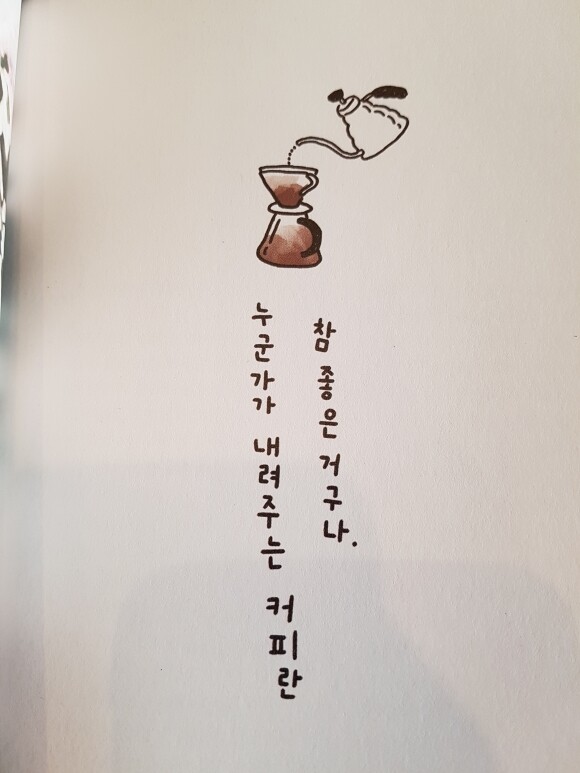 누군가가 내려주는 커피란
참 좋은 거구나.